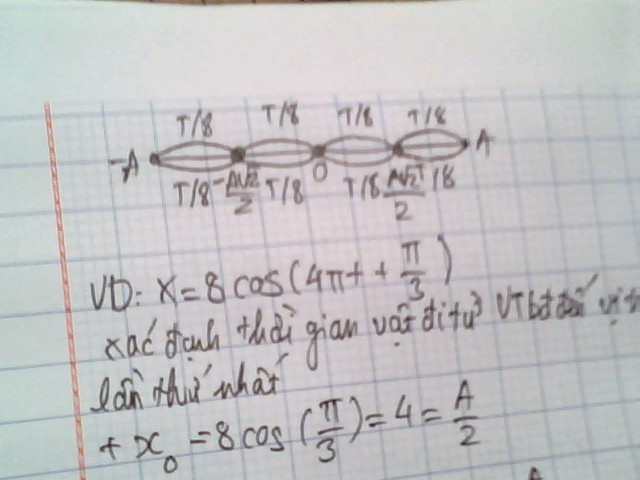 T/8 T/8 T/8 T/8
-A O A
T/8 -A√2/2 T/8 T/8 A√2/2 T/8
VD: x = 8 cos(4πt + π/3)
xác định thời gian vật đi từ VTbđ đến vị
lần thứ nhất
+ x₀ = 8 cos(π/3) = 4 = A/2